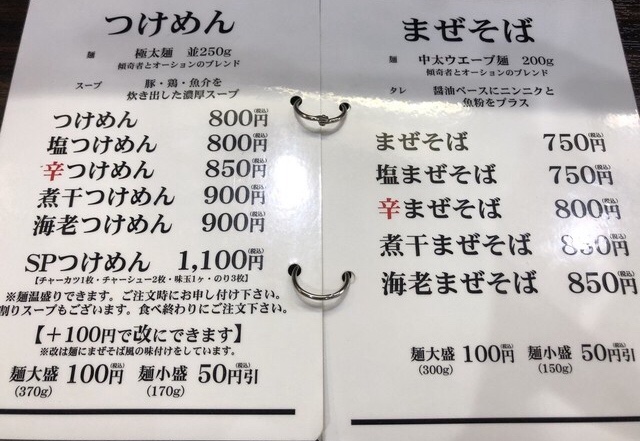 つけめん
麺 極太麺 並250g
傾奇者とオーションのブレンド
スープ 豚・鶏・魚介を
炊き出した濃厚スープ
つけめん 800円(税込)
塩つけめん 800円(税込)
辛つけめん 850円(税込)
煮干つけめん 900円(税込)
海老つけめん 900円(税込)
SPつけめん 1,100円(税込)
【チャーカツ1枚・チャーシュー2枚・味玉1ヶ・のり3枚】
※麺温盛りできます。ご注文時にお申し付け下さい。
割りスープもございます。食べ終わりにご注文下さい。
【+100円で改にできます】
※改は麺にまぜそば風の味付けをしています。
麺大盛 100円(税込) 麺小盛 50円引(税込)
(370g) (170g)
まぜそば
麺 中太ウエーブ麺 200g
傾奇者とオーションのブレンド
タレ 醤油ベースにニンニクと
魚粉をプラス
まぜそば 750円(税込)
塩まぜそば 750円(税込)
辛まぜそば 800円(税込)
煮干まぜそば 850円(税込)
海老まぜそば 850円(税込)
麺大盛 100円(税込) 麺小盛 50円引(税込)
(300g) (150g)